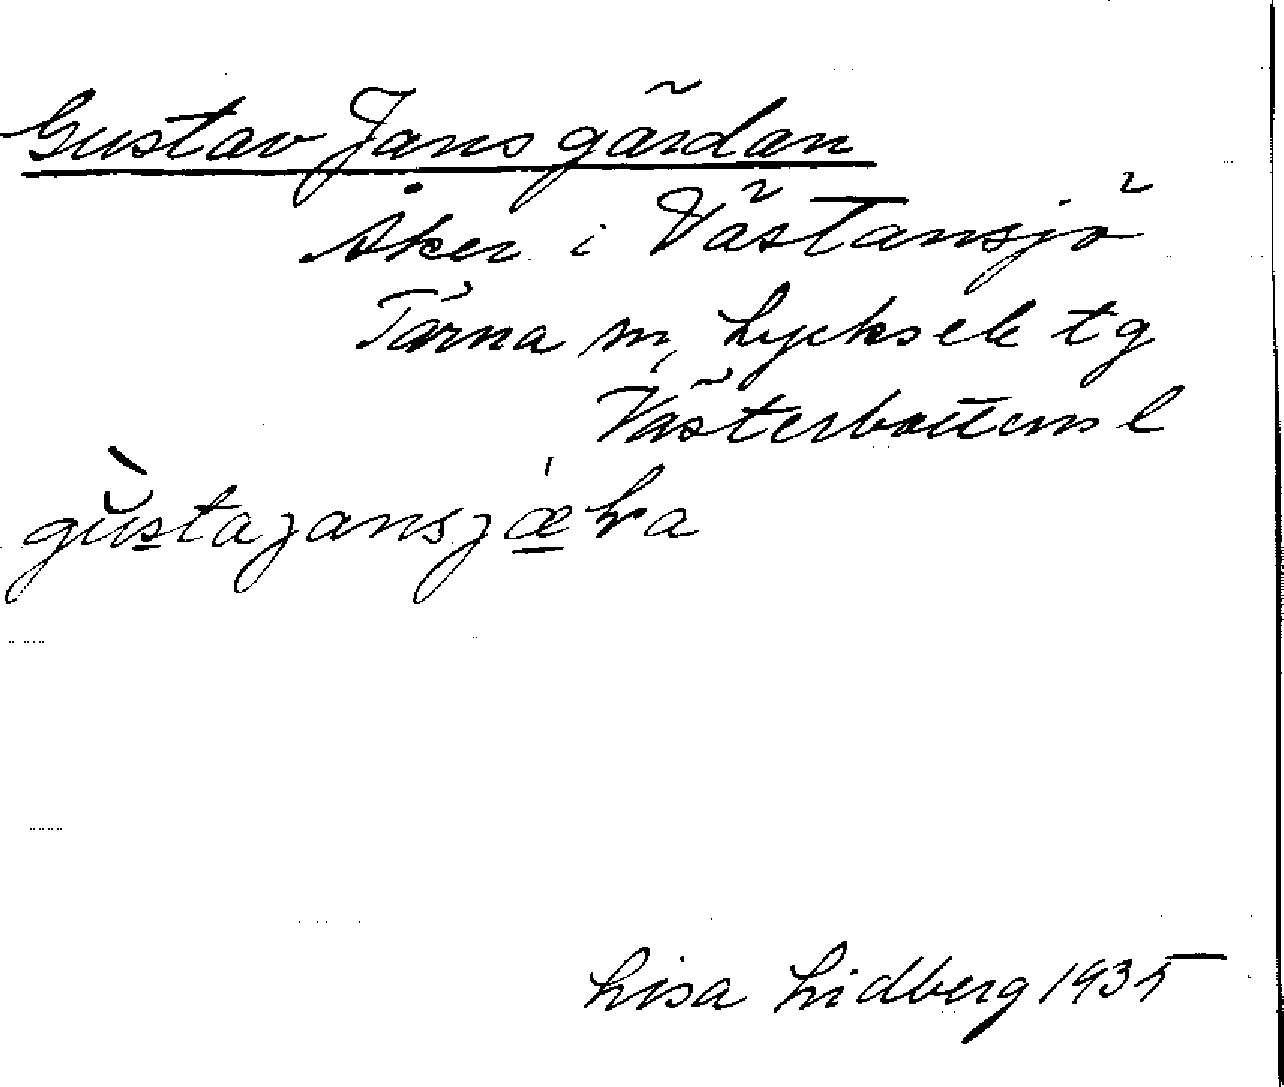 Gustav Jans gärdan
Åker i Västansjö
Tärna sn, Lycksele tg
Västerbottens l
gustajansjæka
Lisa Lidberg 1935